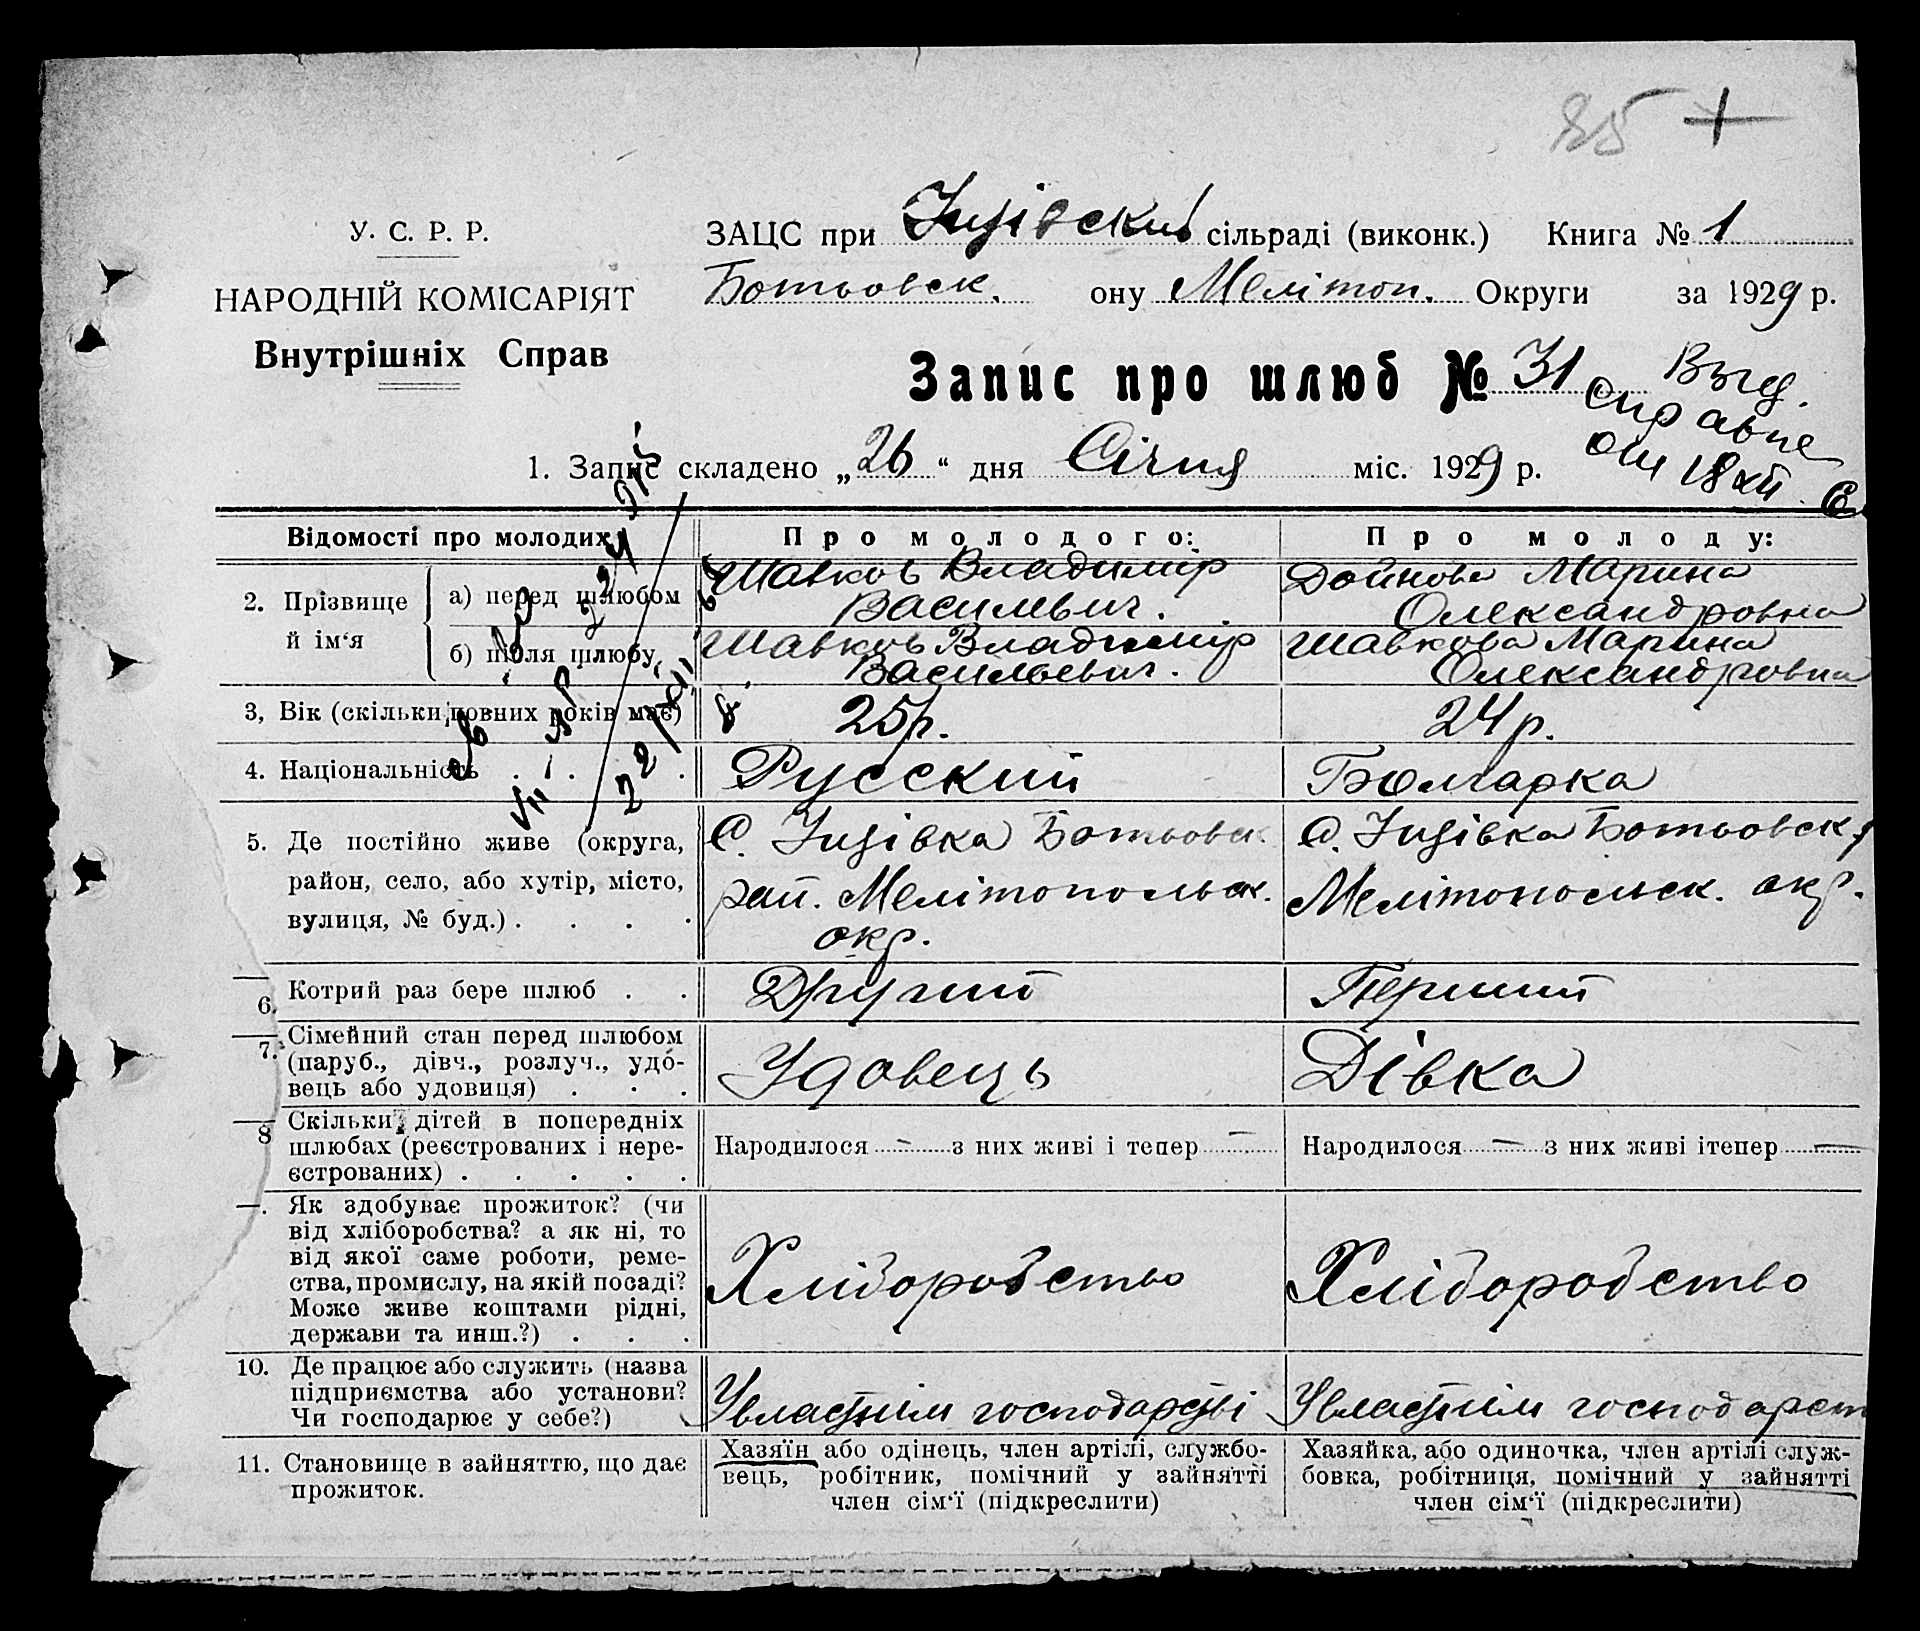 85 +
У. С. Р. Р.
НАРОДНІЙ КОМІСАРІЯТ
Внутрішніх Справ
ЗАЦС при сільраді (виконк.) Книга № 1
Ботьовск. ону Мелітоп. Округи за 1929 р.
Запис про шлюб № 31
Выд.
справке
18 XII
1. Запис складено „26“ дня Січня міс. 1929 р.
Відомості про молодих Про молодого: Про молоду:
2. Прізвище й ім‘я
а) перед шлюбом Шавков Владимір Васильвич. Дойнова Марина Олександровна
б) після шлюбу Шавков Владимір Васильевич. Шавкова Марина Олександровна
3, Вік (скільки повних років має) 25 р. 24 р.
4. Національність . . . . Русский Болгарка
5. Де постійно живе (округа, С. Інзівка Ботьовск С. Інзівка Ботьовск
район, село, або хутір, місто, рай. Мелітопольск. Мелітопольск. окр.
вулиця, № буд.) . . . . окр.
6. Котрий раз бере шлюб . . Другий Перший
7. Сімейний стан перед шлюбом
(паруб., дівч., розлуч., удо-
вець або удовиця) . . . Удовець Дівка
8 Скільки дітей в попередніх
шлюбах (реєстрованих і нере-
єстрованих) . . . . . Народилося — з них живі і тепер — Народилося — з них живі ітепер —
—. Як здобуває прожиток? (чи
від хліборобства? а як ні, то
від якої саме роботи, реме-
ства, промислу, на якій посаді?
Може живе коштами рідні,
держави та инш.?) . . . Хліборобство Хліборобство
10. Де працює або служить (назва
підприємства або установи?
Чи господарює у себе?) У власнім господарстві У власнім господарст
11. Становище в зайняттю, що дає
прожиток.
Хазяїн або одінець, член артілі, службо-
вець, робітник, помічний у зайнятті
член сім‘ї (підкреслити)
Хазяйка, або одиночка, член артілі служ-
бовка, робітниця, помічний у зайнятті
член сім‘ї (підкреслити)